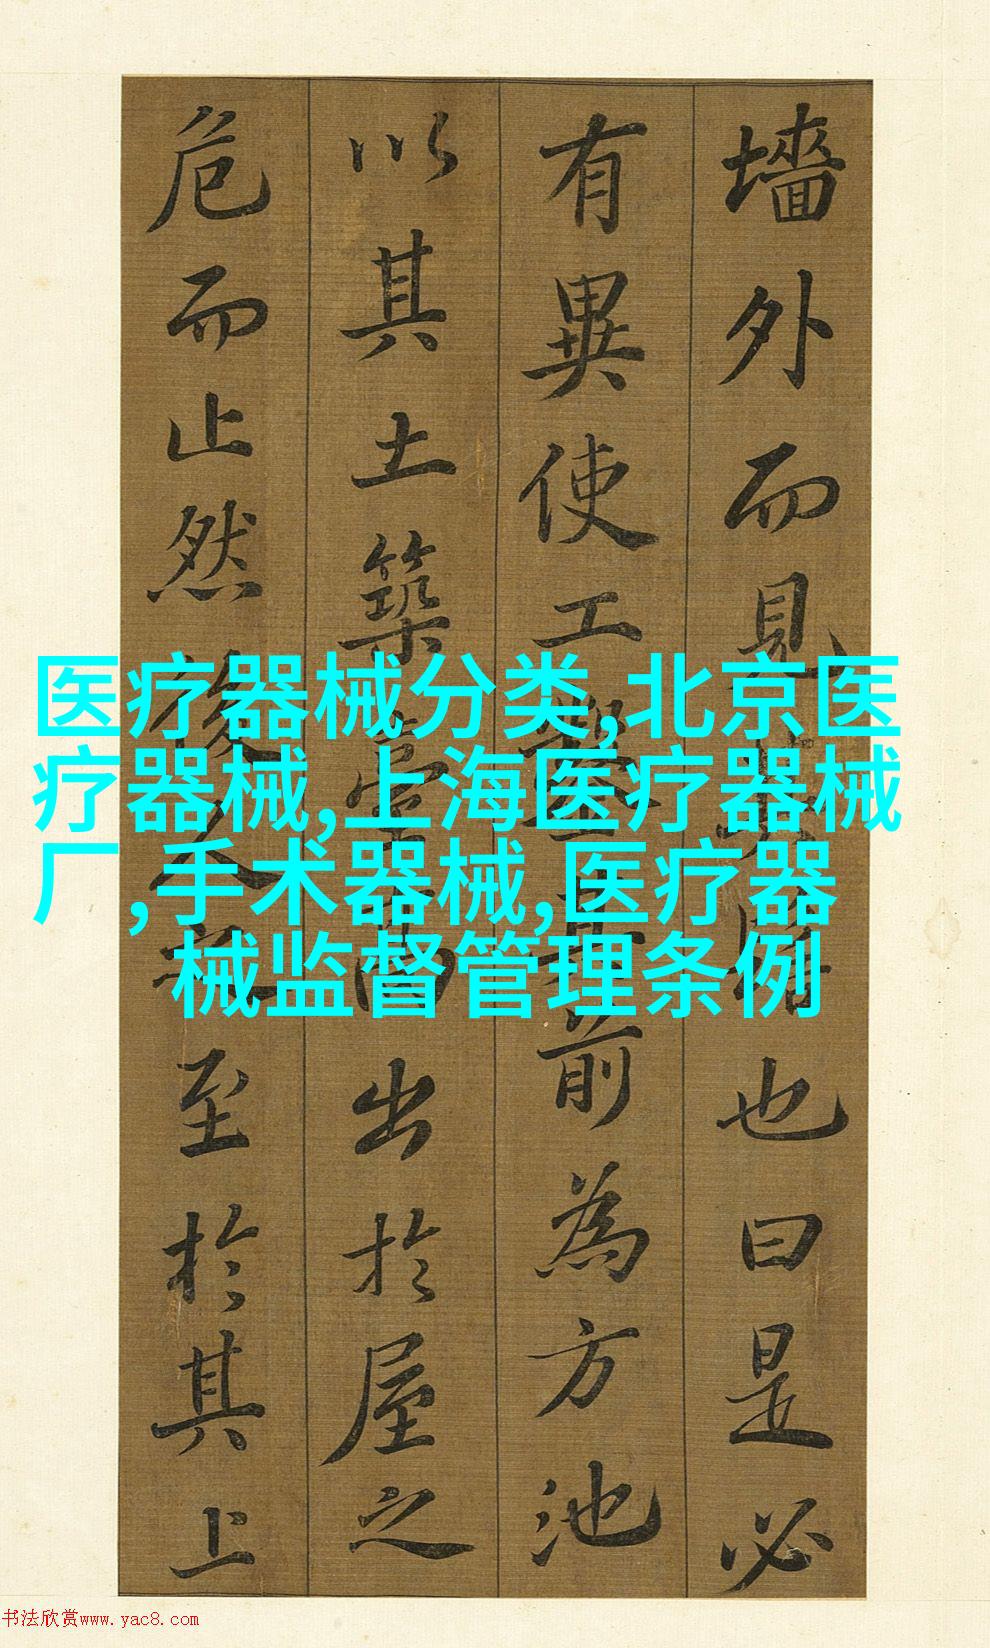 墻外而見其髻也曰是必
有異使工鑿其前為方池
以其土築臺高出於屋之
危而止然後人之至於其上
医疗器械分类,北京医
疗器械,上海医疗器械
厂,手术器械,医疗器
械监督管理条例
书法欣赏www.yac8.com